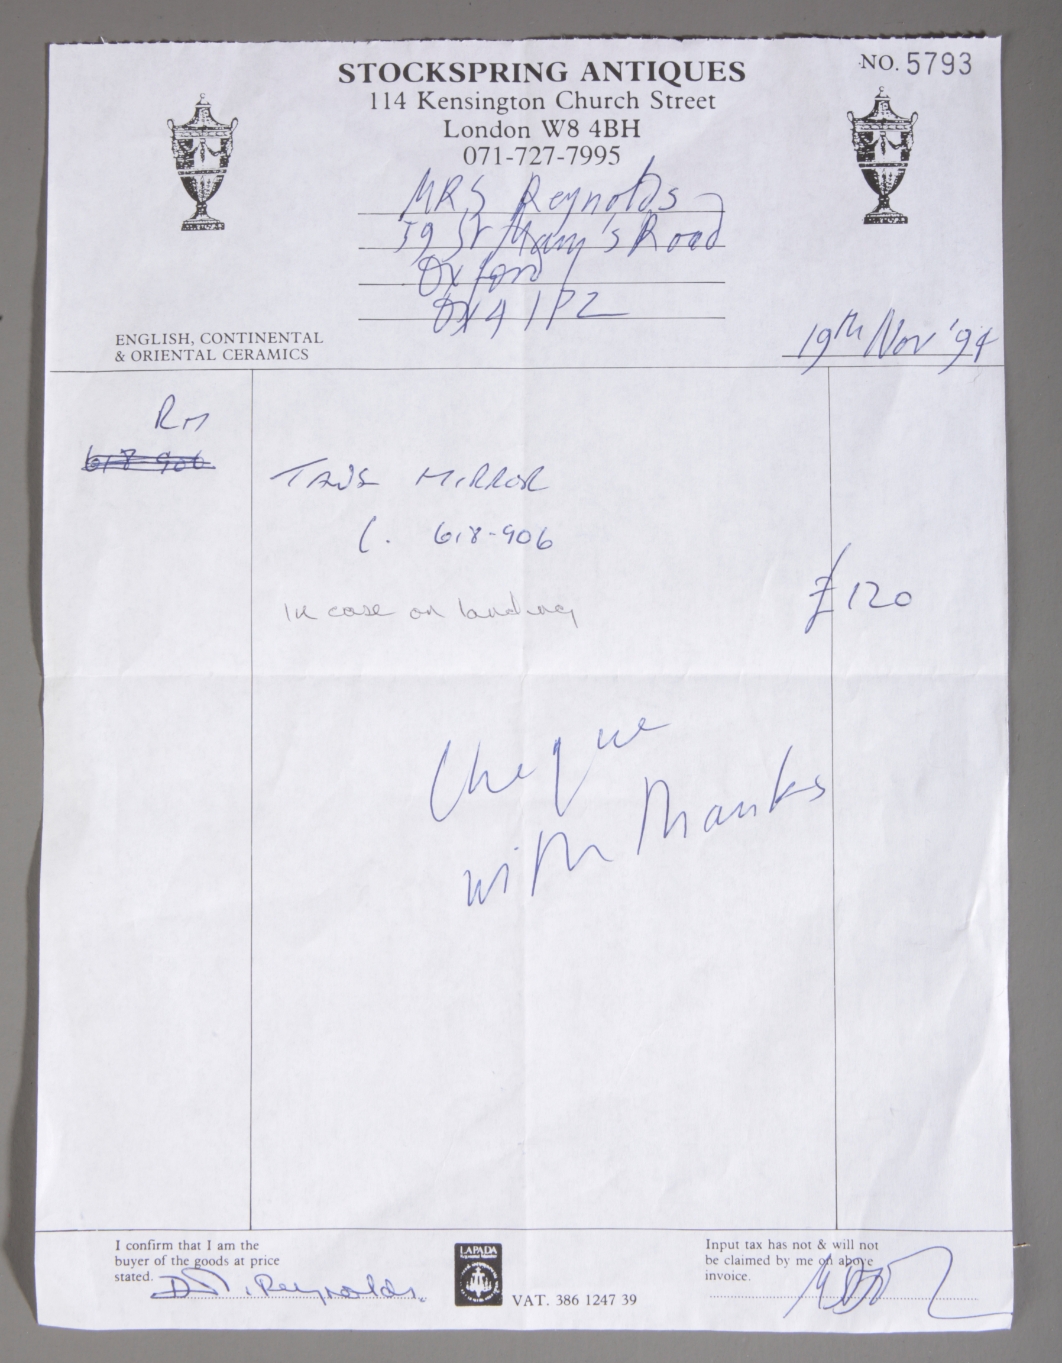 NO. 5793
STOCKSPRING ANTIQUES
114 Kensington Church Street
London W8 4BH
071-727-7995
MRS Reynolds
59 St Mary's Road
Oxford
OX4 1PZ
ENGLISH, CONTINENTAL
& ORIENTAL CERAMICS
19th Nov '94
RM
618-906
TANG MIRROR
C. 618-906
In case on landing
£120
Cheque
with thanks
I confirm that I am the
buyer of the goods at price
stated. D. Reynolds.
LAPADA
VAT. 386 1247 39
Input tax has not & will not
be claimed by me on above
invoice.